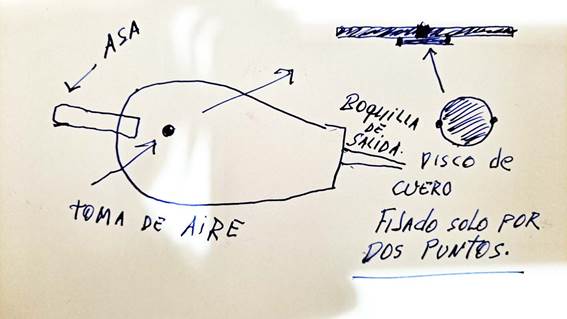 ASA
TOMA DE AIRE
BOQUILLA
DE
SALIDA.
DISCO de
CUERO
FIJADO SOLO POR
DOS PUNTOS.